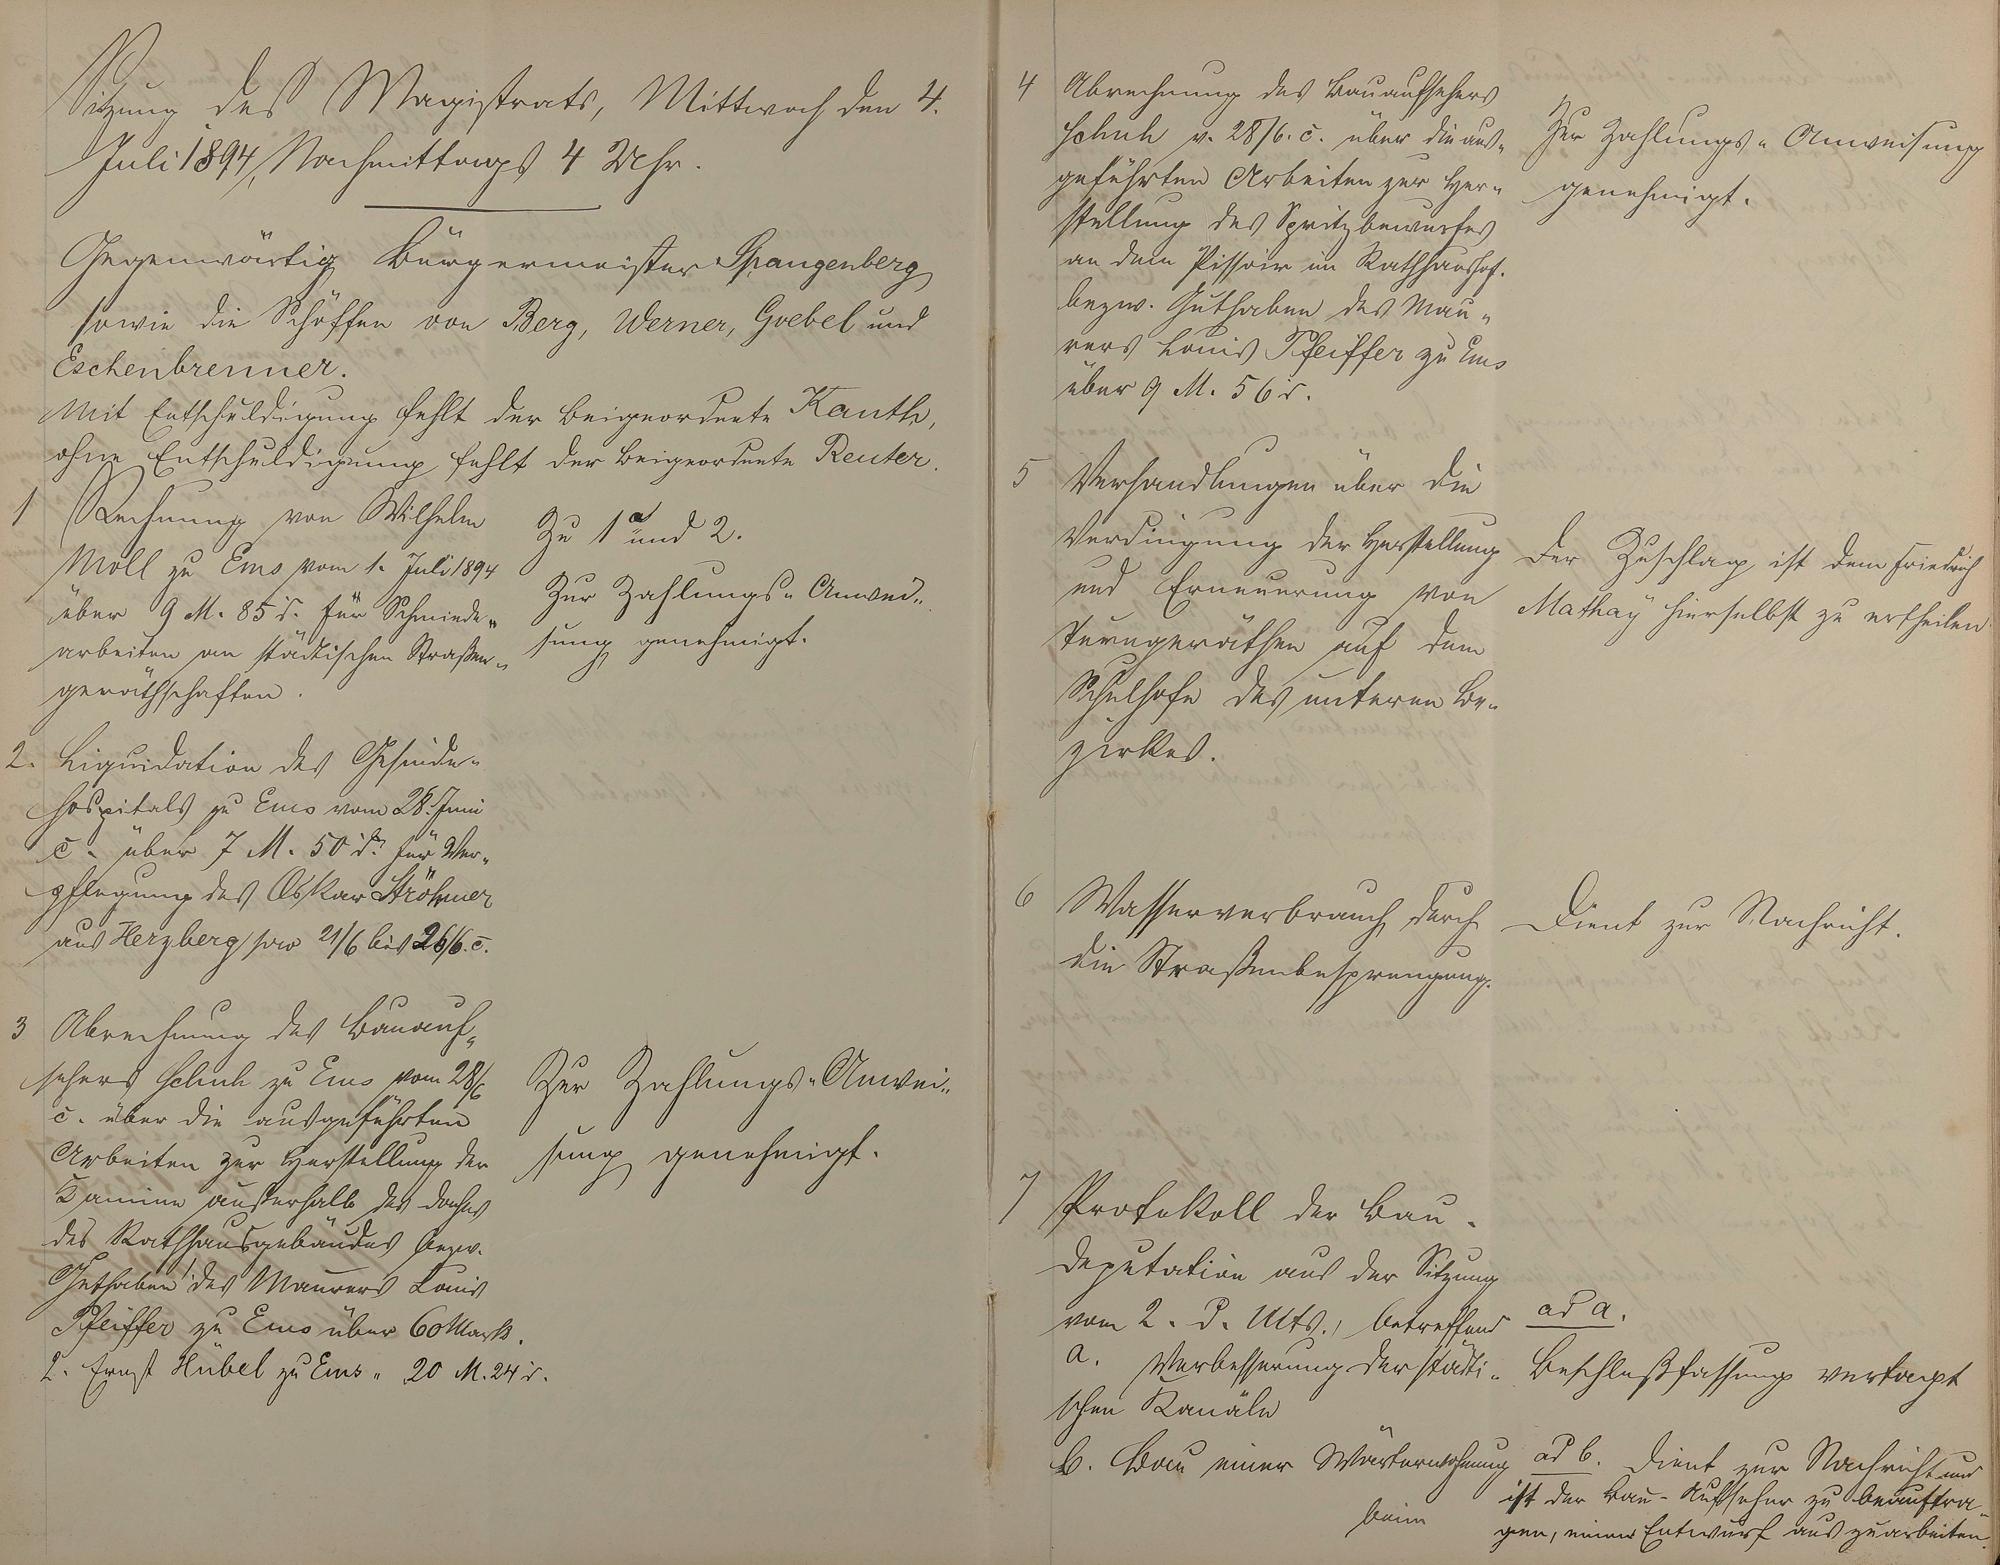 Sitzung des Magistrats, Mittwoch den 4.
Juli 1894, Nachmittags 4 Uhr.
Gegenwärtig Bürgermeister Spangenberg
sowie die Schöffen von Berg, Werner, Goebel und
Eschenbrenner.
Mit Entschuldigung fehlt der Beigeordnete Kauth,
ohne Entschuldigung fehlt der Beigeordnete Reuter.
1 Rechnung von Wilhelm
Moll zu Ems vom 1. Juli 1894
über 9 M. 85 d. für Schmiede-
arbeiten an städtischen Straßen-
geräthschaften.
Zu 1 und 2.
Zur Zahlungs-Anwei-
sung genehmigt.
2. Liquidation des Gesinde-
hospitals zu Ems vom 28. Juni
c. über 7 M. 50 d. für Ver-
pflegung des Oskar Ströhmer
aus Herzberg pro 21/6 bis 26/6. c.
3 Abrechnung des Bauauf-
sehers Schuh zu Ems vom 28/6
c. über die ausgeführten
Arbeiten zur Herstellung der
Kamine außerhalb des Daches
des Rathhausgebäudes bezw.
Guthaben 1 des Maurers Louis
Pfeiffer zu Ems über 60 Mark.
2. Ernst Hübel zu Ems " 20 M. 24 d.
Zur Zahlungs-Anwei-
sung genehmigt.
4 Abrechnung des Bauaufsehers
Schuh v. 28/6. c. über die aus-
geführten Arbeiten zur Her-
stellung des Spritzbewurfes
an dem Pissoir im Rathhaushof.
bezw. Guthaben des Mau-
rers Louis Pfeiffer zu Ems
über 9 M. 56 d.
Zur Zahlungs-Anweisung
genehmigt.
5 Verhandlungen über die
Verdingung der Herstellung
und Erneuerung von
Turngeräthen auf dem
Schulhofe des unteren Be-
zirkes.
Der Zuschlag ist dem Friedrich
Mathay hierselbst zu ertheilen
6 Wasserverbrauch durch
die Straßenbesprengung.
Dient zur Nachricht.
7 Protokoll der Bau-
deputation aus der Sitzung
vom 2. d. Mts., betreffend
a. Verbesserung der städti-
schen Kanäle
ad a.
Beschlußfassung vertagt
b. Bau einer Wärterwohnung
beim
ad b. Dient zur Nachricht und
ist der Bau-Aufseher zu beauftra-
gen, einen Entwurf auszuarbeiten.